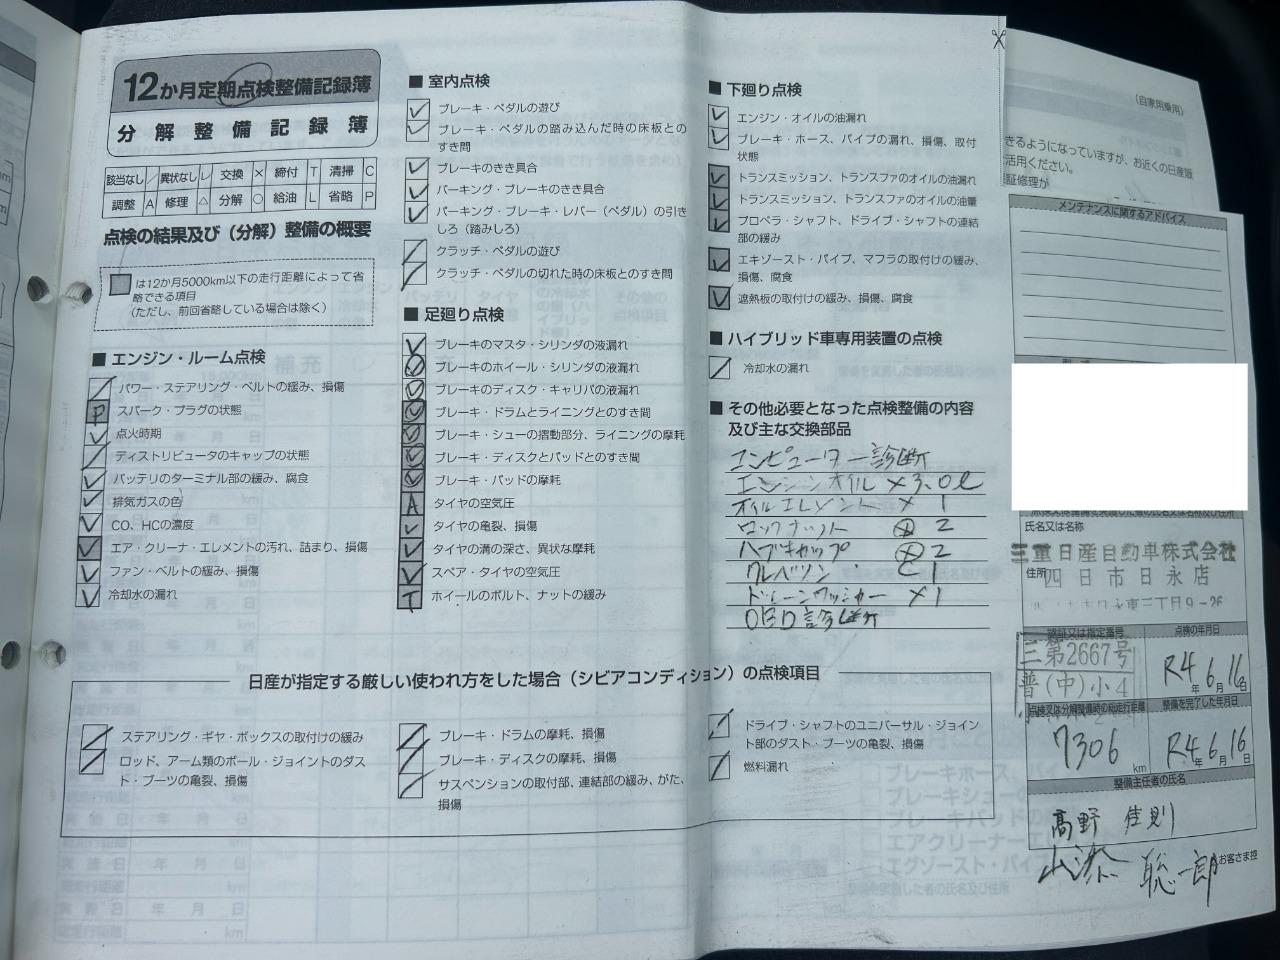 12か月定期点検整備記録簿
分解整備記録簿
該当なし / 異状なし レ 交換 × 締付 T 清掃 C
調整 A 修理 △ 分解 ○ 給油 L 省略 P
点検の結果及び（分解）整備の概要
は12か月5000km以下の走行距離によって省
略できる項目
（ただし、前回省略している場合は除く）
■ エンジン・ルーム点検
パワー・ステアリング・ベルトの緩み、損傷
P スパーク・プラグの状態
点火時期
ディストリビュータのキャップの状態
バッテリのターミナル部の緩み、腐食
排気ガスの色
CO、HCの濃度
エア・クリーナ・エレメントの汚れ、詰まり、損傷
ファン・ベルトの緩み、損傷
冷却水の漏れ
■ 室内点検
ブレーキ・ペダルの遊び
ブレーキ・ペダルの踏み込んだ時の床板との
すき間
ブレーキのきき具合
パーキング・ブレーキのきき具合
パーキング・ブレーキ・レバー（ペダル）の引き
しろ（踏みしろ）
クラッチ・ペダルの遊び
クラッチ・ペダルの切れた時の床板とのすき間
■ 足廻り点検
ブレーキのマスタ・シリンダの液漏れ
ブレーキのホイール・シリンダの液漏れ
ブレーキのディスク・キャリパの液漏れ
ブレーキ・ドラムとライニングとのすき間
ブレーキ・シューの摺動部分、ライニングの摩耗
ブレーキ・ディスクとパッドとのすき間
ブレーキ・パッドの摩耗
A タイヤの空気圧
タイヤの亀裂、損傷
タイヤの溝の深さ、異状な摩耗
スペア・タイヤの空気圧
T ホイールのボルト、ナットの緩み
■ 下廻り点検
エンジン・オイルの油漏れ
ブレーキ・ホース、パイプの漏れ、損傷、取付
状態
トランスミッション、トランスファのオイルの油漏れ
トランスミッション、トランスファのオイルの油量
プロペラ・シャフト、ドライブ・シャフトの連結
部の緩み
エキゾースト・パイプ、マフラの取付けの緩み、
損傷、腐食
遮熱板の取付けの緩み、損傷、腐食
■ ハイブリッド車専用装置の点検
冷却水の漏れ
■ その他必要となった点検整備の内容
及び主な交換部品
コンピューター診断
エンジンオイル ×3.0ℓ
オイルエレメント × 1
ロックナット ⊗ 2
ハブキャップ ⊗ 2
ドレーンワッシャー ×1
OBD診断
日産が指定する厳しい使われ方をした場合（シビアコンディション）の点検項目
ステアリング・ギヤ・ボックスの取付けの緩み
ロッド、アーム類のボール・ジョイントのダス
ト・ブーツの亀裂、損傷
ブレーキ・ドラムの摩耗、損傷
ブレーキ・ディスクの摩耗、損傷
サスペンションの取付部、連結部の緩み、がた、
損傷
ドライブ・シャフトのユニバーサル・ジョイン
ト部のダスト・ブーツの亀裂、損傷
燃料漏れ
（自家用乗用）
きるようになっていますが、お近くの日産販
活用ください。
証修理が
メンテナンスに関するアドバイス
氏名又は名称
三重日産自動車株式会社
住所
四日市日永店
認証又は指定番号
三第2667号
普（中）小4
点検の年月日
R4年6月16日
点検又は分解整備時の総走行距離
7306 km
整備を完了した年月日
R4年6月16日
整備主任者の氏名
髙野 佳則
お客さま控